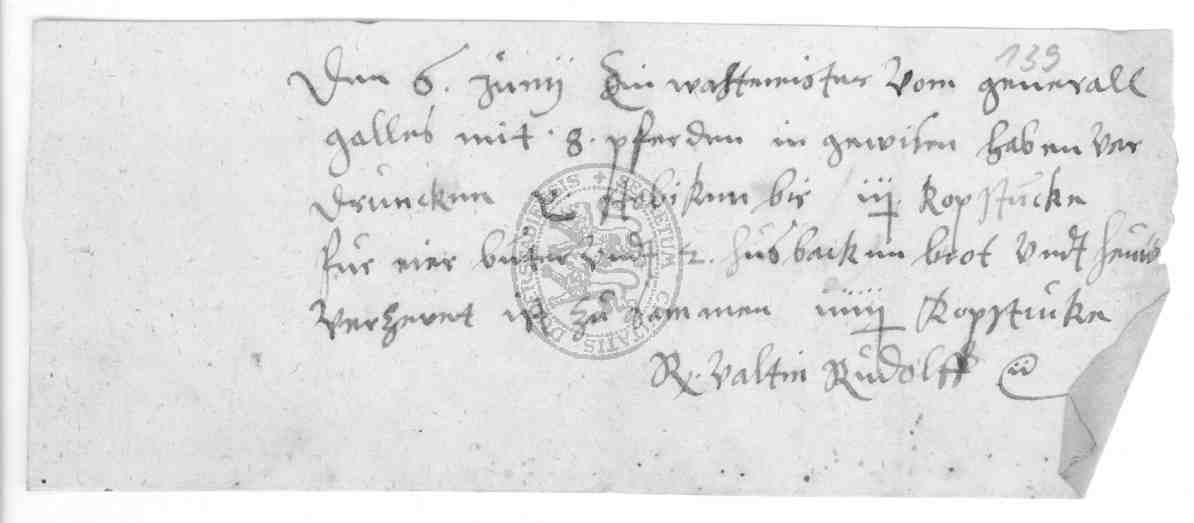 139
Den 6. Junij Ein wachtmeister Vom generall
galles mit . 8 . pferden in gewisen haben Ver
druncken stobiken bir iij Kopstucke
fur eier butter Vndt husbacken brot Vndt
Verzeret ist zu zammen iiiij Kopstucke
Valtin Rudolff
SECRETUM CIVITATIS